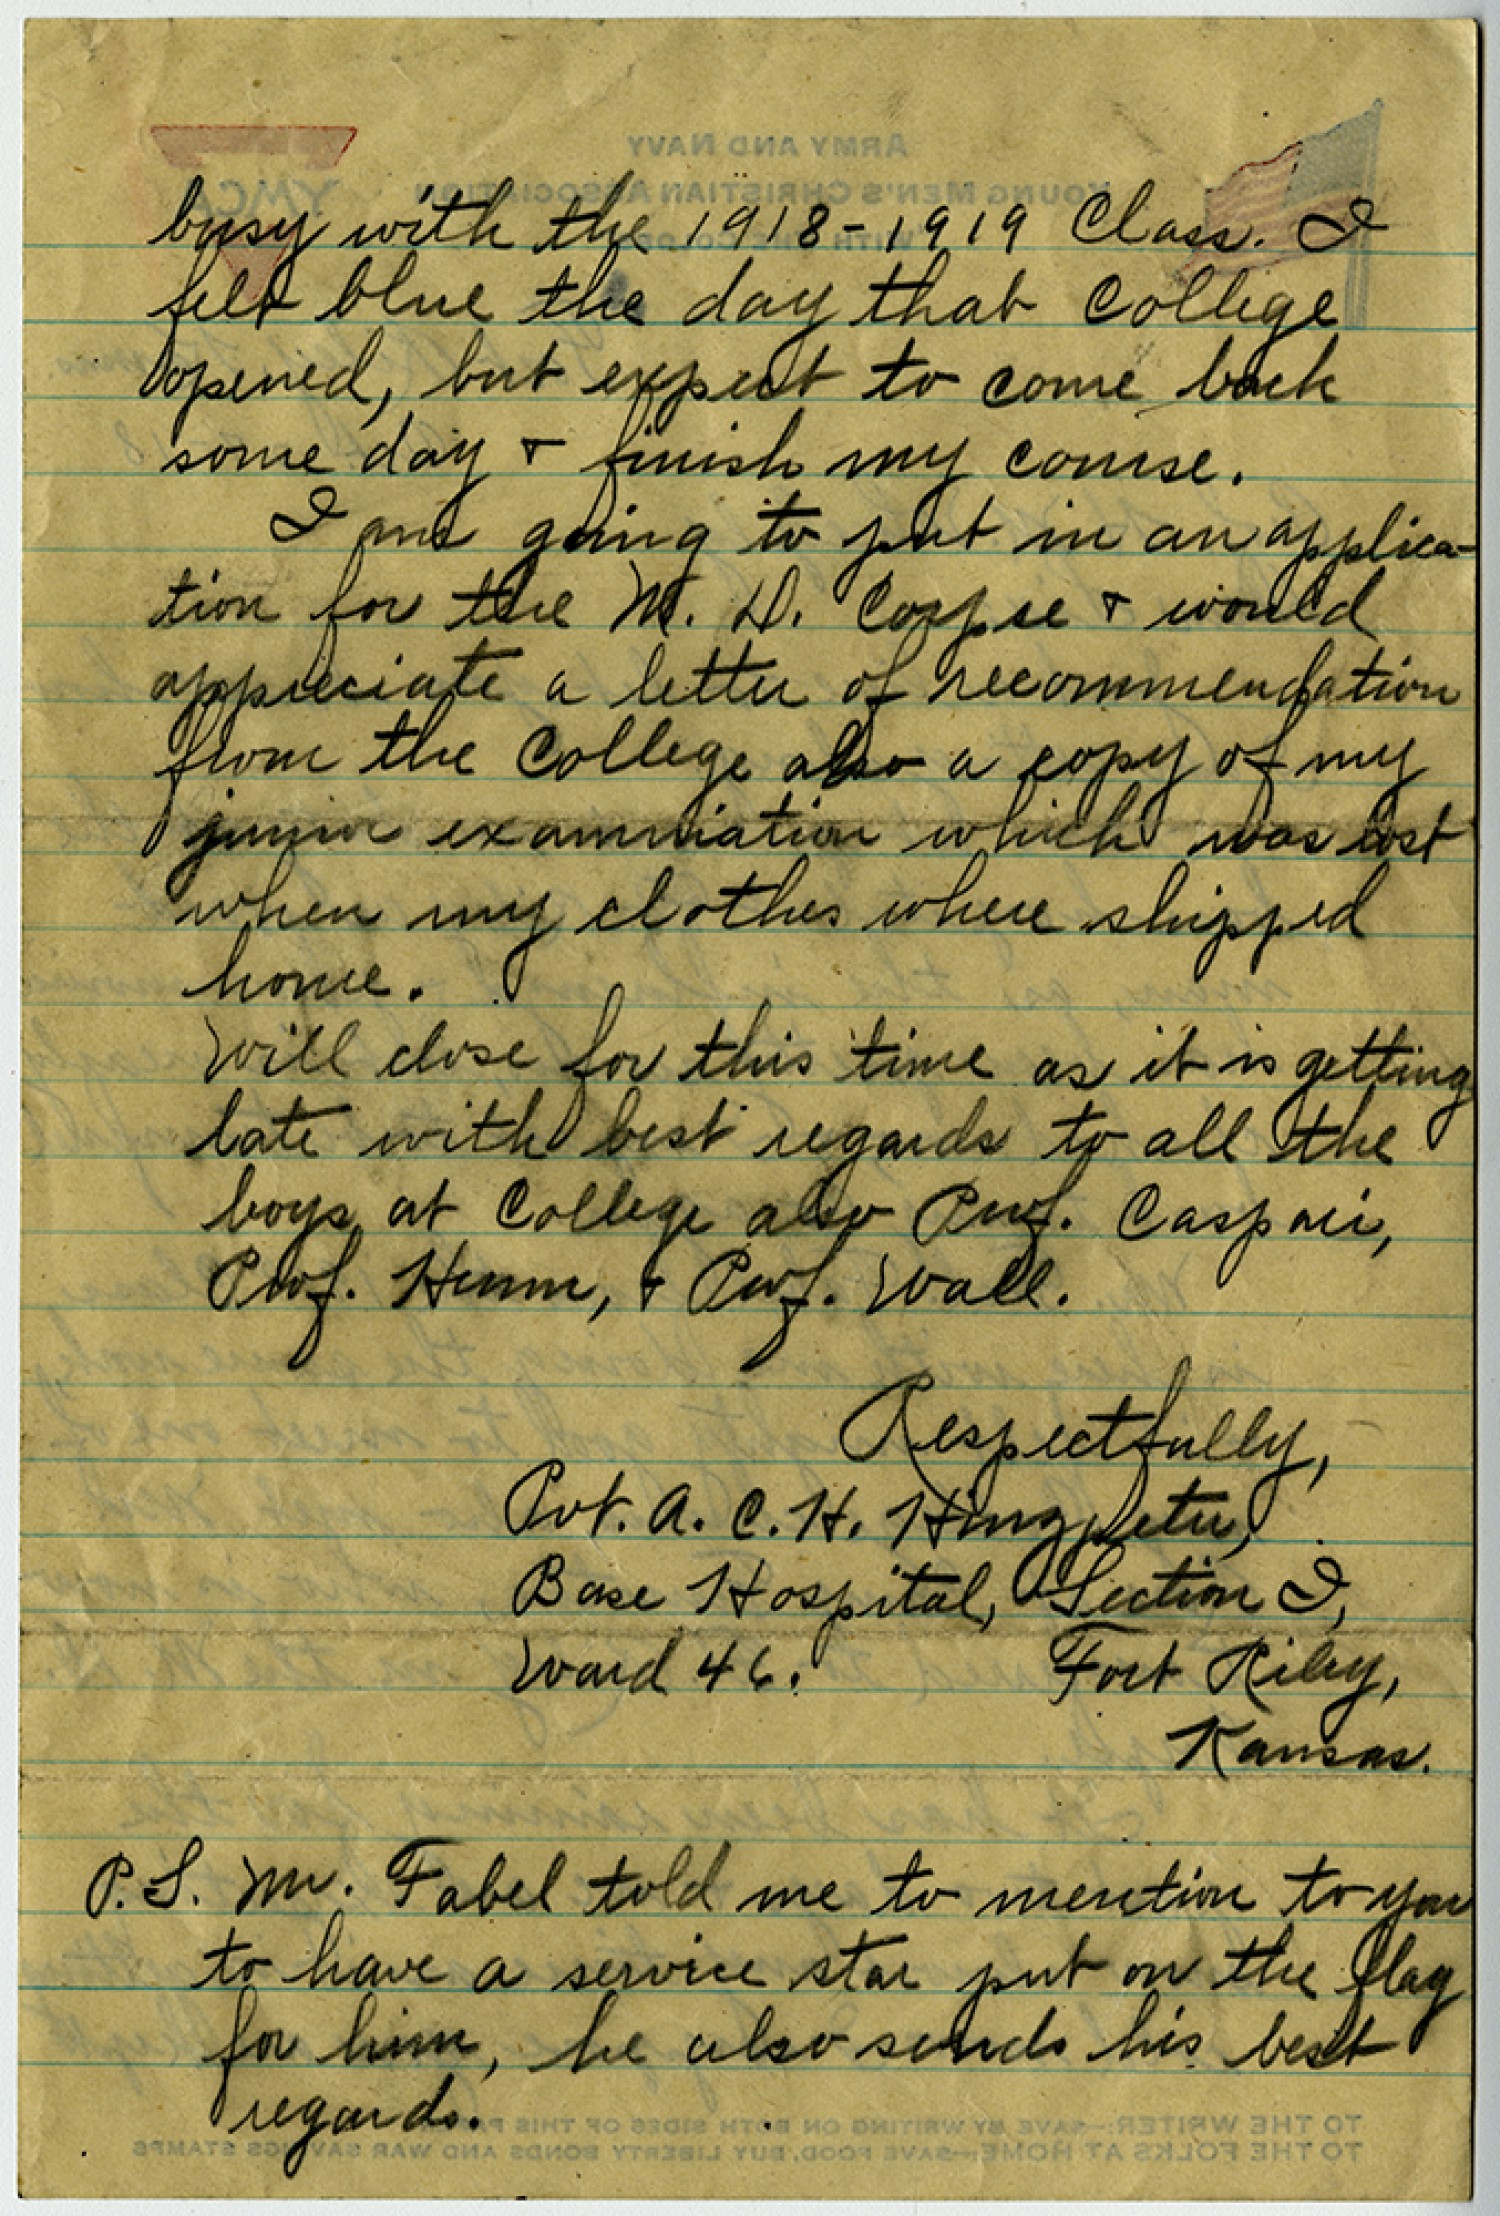 busy with the 1918-1919 Class. I
felt blue the day that College
opened, but expect to come back
some day & finish my course.
I am going to put in an applica-
tion for the M. D. Corpse & would
appreciate a letter of recommendation
from the College also a copy of my
junior examination which was lost
when my clothes where shipped
home.
Will close for this time as it is getting
late with best regards to all the
boys at College also Prof. Caspari,
Prof. Hemm, & Prof. Wall.
Respectfully,
Pvt. A. C. H. Hingpeter,
Base Hospital, Section I,
Ward 46. Fort Riley,
Kansas.
P.S. Mr. Fabel told me to mention to you
to have a service star put on the flag
for him, he also sends his best
regards.
ARMY AND NAVY
YOUNG MEN'S CHRISTIAN ASSOCIATION
"WITH THE COLORS"
YMCA
TO THE WRITER:—SAVE BY WRITING ON BOTH SIDES OF THIS PAPER
TO THE FOLKS AT HOME:—SAVE FOOD, BUY LIBERTY BONDS AND WAR SAVINGS STAMPS